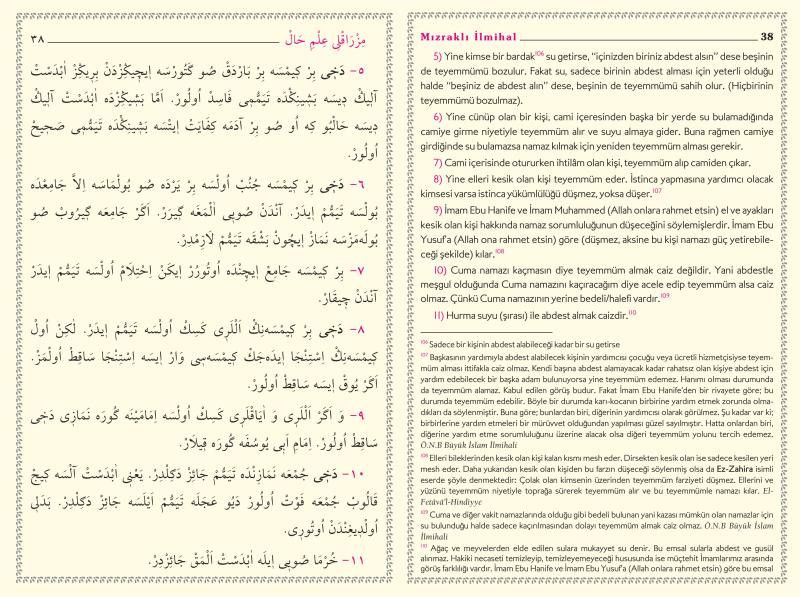 ٣٨ مِزْرَاقْلِى عِلْمِ حَالْ
٥- دَخِى بِرْ كِيمْسَه بِرْ بَارْدَقْ صُو كَتُورْسَه اِيچِيكْزْدَنْ بِرِيكْزْ اٰبْدَسْتْ
آلِيكْ دِيسَه بَشِينِكْدَه تَيَمُّمِى فَاسِدْ اُولُورْ. اَمَّا بَشِيكْزْدَه اٰبْدَسْتْ آلِيكْ
دِيسَه حَالْبُو كِه اُو صُو بِرْ آدَمَه كِفَايَتْ اِيتْسَه بَشِينِكْدَه تَيَمُّمِى صَحِيحْ
اُولُورْ.
٦- دَخِى بِرْ كِيمْسَه جُنُبْ اُولْسَه بِرْ يَرْدَه صُو بُولْمَاسَه اِلاَّ جَامِعْدَه
بُولْسَه تَيَمُّمْ اِيدَرْ. آنْدَنْ صُويِى اَلْمَغَه گِيرَرْ. اَكَرْ جَامِعَه گِيرُوبْ صُو
بُولَه‌مَزْسَه نَمَازْ اِيچُونْ بَشْقَه تَيَمُّمْ لاَزِمْدِرْ.
٧- بِرْ كِيمْسَه جَامِعْ اِيچِنْدَه اُوتُورُرْ اِيكَنْ اِحْتِلاَمْ اُولْسَه تَيَمُّمْ اِيدَرْ
آنْدَنْ چِيقَارْ.
٨- دَخِى بِرْ كِيمْسَه‌نِكْ اَلْلَرِى كَسِكْ اُولْسَه تَيَمُّمْ اِيدَرْ. لٰكِنْ اُولْ
كِيمْسَه‌نِكْ اِسْتِنْجَا اِيدَه‌جَكْ كِيمْسَه‌سِى وَارْ اِيسَه اِسْتِنْجَا سَاقِطْ اُولْمَزْ.
اَكَرْ يُوقْ اِيسَه سَاقِطْ اُولُورْ.
٩- وَ اَكَرْ اَلْلَرِى وَ اَيَاقْلَرِى كَسِكْ اُولْسَه اِمَامَيْنَه گُورَه نَمَازِى دَخِى
سَاقِطْ اُولُورْ. اِمَامِ اَبِى يُوسُفَه گُورَه قِيلاَرْ.
١٠- دَخِى جُمْعَه نَمَازِنْدَه تَيَمُّمْ جَائِزْ دَكِلْدِرْ. يَعْنِى اٰبْدَسْتْ آلْسَه كِيچْ
قَالُوبْ جُمْعَه فَوْتْ اُولُورْ دَيُو عَجَلَه تَيَمُّمْ اَيْلَسَه جَائِزْ دَكِلْدِرْ. بَدَلِى
اُولْدِيغِنْدَنْ اُوتُورِى.
١١- خُرْمَا صُويِى اِيلَه اٰبْدَسْتْ اَلْمَقْ جَائِزْدِرْ.
Mızraklı İlmihal 38
5) Yine kimse bir bardak106 su getirse, “içinizden biriniz abdest alsın” dese beşinin
de teyemmümü bozulur. Fakat su, sadece birinin abdest alması için yeterli olduğu
halde “beşiniz de abdest alın” dese, beşinin de teyemmümü sahih olur. (Hiçbirinin
teyemmümü bozulmaz).
6) Yine cünüp olan bir kişi, cami içerisinden başka bir yerde su bulamadığında
camiye girme niyetiyle teyemmüm alır ve suyu almaya gider. Buna rağmen camiye
girdiğinde su bulamazsa namaz kılmak için yeniden teyemmüm alması gerekir.
7) Cami içerisinde otururken ihtilâm olan kişi, teyemmüm alıp camiden çıkar.
8) Yine elleri kesik olan kişi teyemmüm eder. İstinca yapmasına yardımcı olacak
kimsesi varsa istinca yükümlülüğü düşmez, yoksa düşer.107
9) İmam Ebu Hanife ve İmam Muhammed (Allah onlara rahmet etsin) el ve ayakları
kesik olan kişi hakkında namaz sorumluluğunun düşeceğini söylemişlerdir. İmam Ebu
Yusuf’a (Allah ona rahmet etsin) göre (düşmez, aksine bu kişi namazı güç yetirebile-
ceği şekilde) kılar.108
10) Cuma namazı kaçmasın diye teyemmüm almak caiz değildir. Yani abdestle
meşgul olduğunda Cuma namazını kaçıracağım diye acele edip teyemmüm alsa caiz
olmaz. Çünkü Cuma namazının yerine bedeli/halefi vardır.109
11) Hurma suyu (şırası) ile abdest almak caizdir.110
106 Sadece bir kişinin abdest alabileceği kadar bir su getirse
107 Başkasının yardımıyla abdest alabilecek kişinin yardımcısı çocuğu veya ücretli hizmetçisiyse teyem-
müm alması ittifakla caiz olmaz. Kendi başına abdest alamayacak kadar rahatsız olan kişiye abdest için
yardım edebilecek bir başka adam bulunuyorsa yine teyemmüm edemez. Hanımı olması durumunda
da teyemmüm alamaz. Kabul edilen görüş budur. Fakat İmam Ebu Hanife’den bir rivayete göre; bu
durumda teyemmüm edebilir. Böyle bir durumda karı-kocanın birbirine yardım etmek zorunda olma-
dıkları da söylenmiştir. Buna göre; bunlardan biri, diğerinin yardımcısı olarak görülmez. Şu kadar var ki;
birbirlerine yardım etmeleri bir mürüvvet olduğundan yapılması güzel sayılmıştır. Hatta onlardan biri,
diğerine yardım etme sorumluluğunu üzerine alacak olsa diğeri teyemmüm yolunu tercih edemez.
Ö.N.B Büyük İslam İlmihali
108 Elleri bileklerinden kesik olan kişi kalan kısmı mesh eder. Dirsekten kesik olan ise sadece kesilen yeri
mesh eder. Daha yukarıdan kesik olan kişiden bu farzın düşeceği söylenmiş olsa da Ez-Zahira isimli
eserde şöyle denmektedir: Çolak olan kimsenin üzerinden teyemmüm farziyeti düşmez. Ellerini ve
yüzünü teyemmüm niyetiyle toprağa sürerek teyemmüm alır ve bu teyemmümle namaz kılar. El-
Fetâvâ’l-Hindiyye
109 Cuma ve diğer vakit namazlarında olduğu gibi bedeli bulunan yani kazası mümkün olan namazlar için
su bulunduğu halde sadece kaçırılmasından dolayı teyemmüm almak caiz olmaz. Ö.N.B Büyük İslam
İlmihali
110 Ağaç ve meyvelerden elde edilen sulara mukayyet su denir. Bu emsal sularla abdest ve gusül
alınmaz. Hakiki necaseti temizleyip, temizleyemeyeceği hususunda ise müçtehit İmamlarımız arasında
görüş farklılığı vardır. İmam Ebu Hanife ve İmam Ebu Yusuf’a (Allah onlara rahmet etsin) göre bu emsal